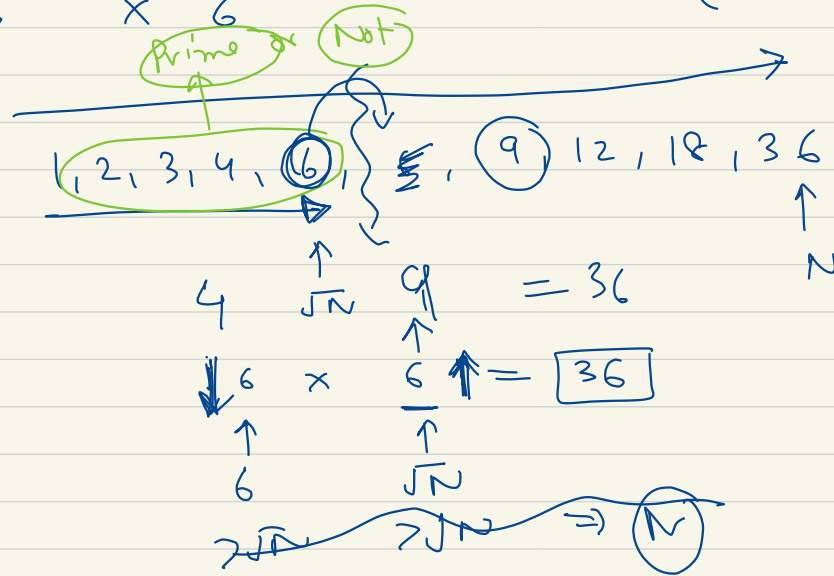 x 6
Prime or Not
1, 2, 3, 4, 6, 9, 12, 18, 36
N
4 √N 9 = 36
6 x 6 = 36
6 √N
>√N >√N ⇒ N